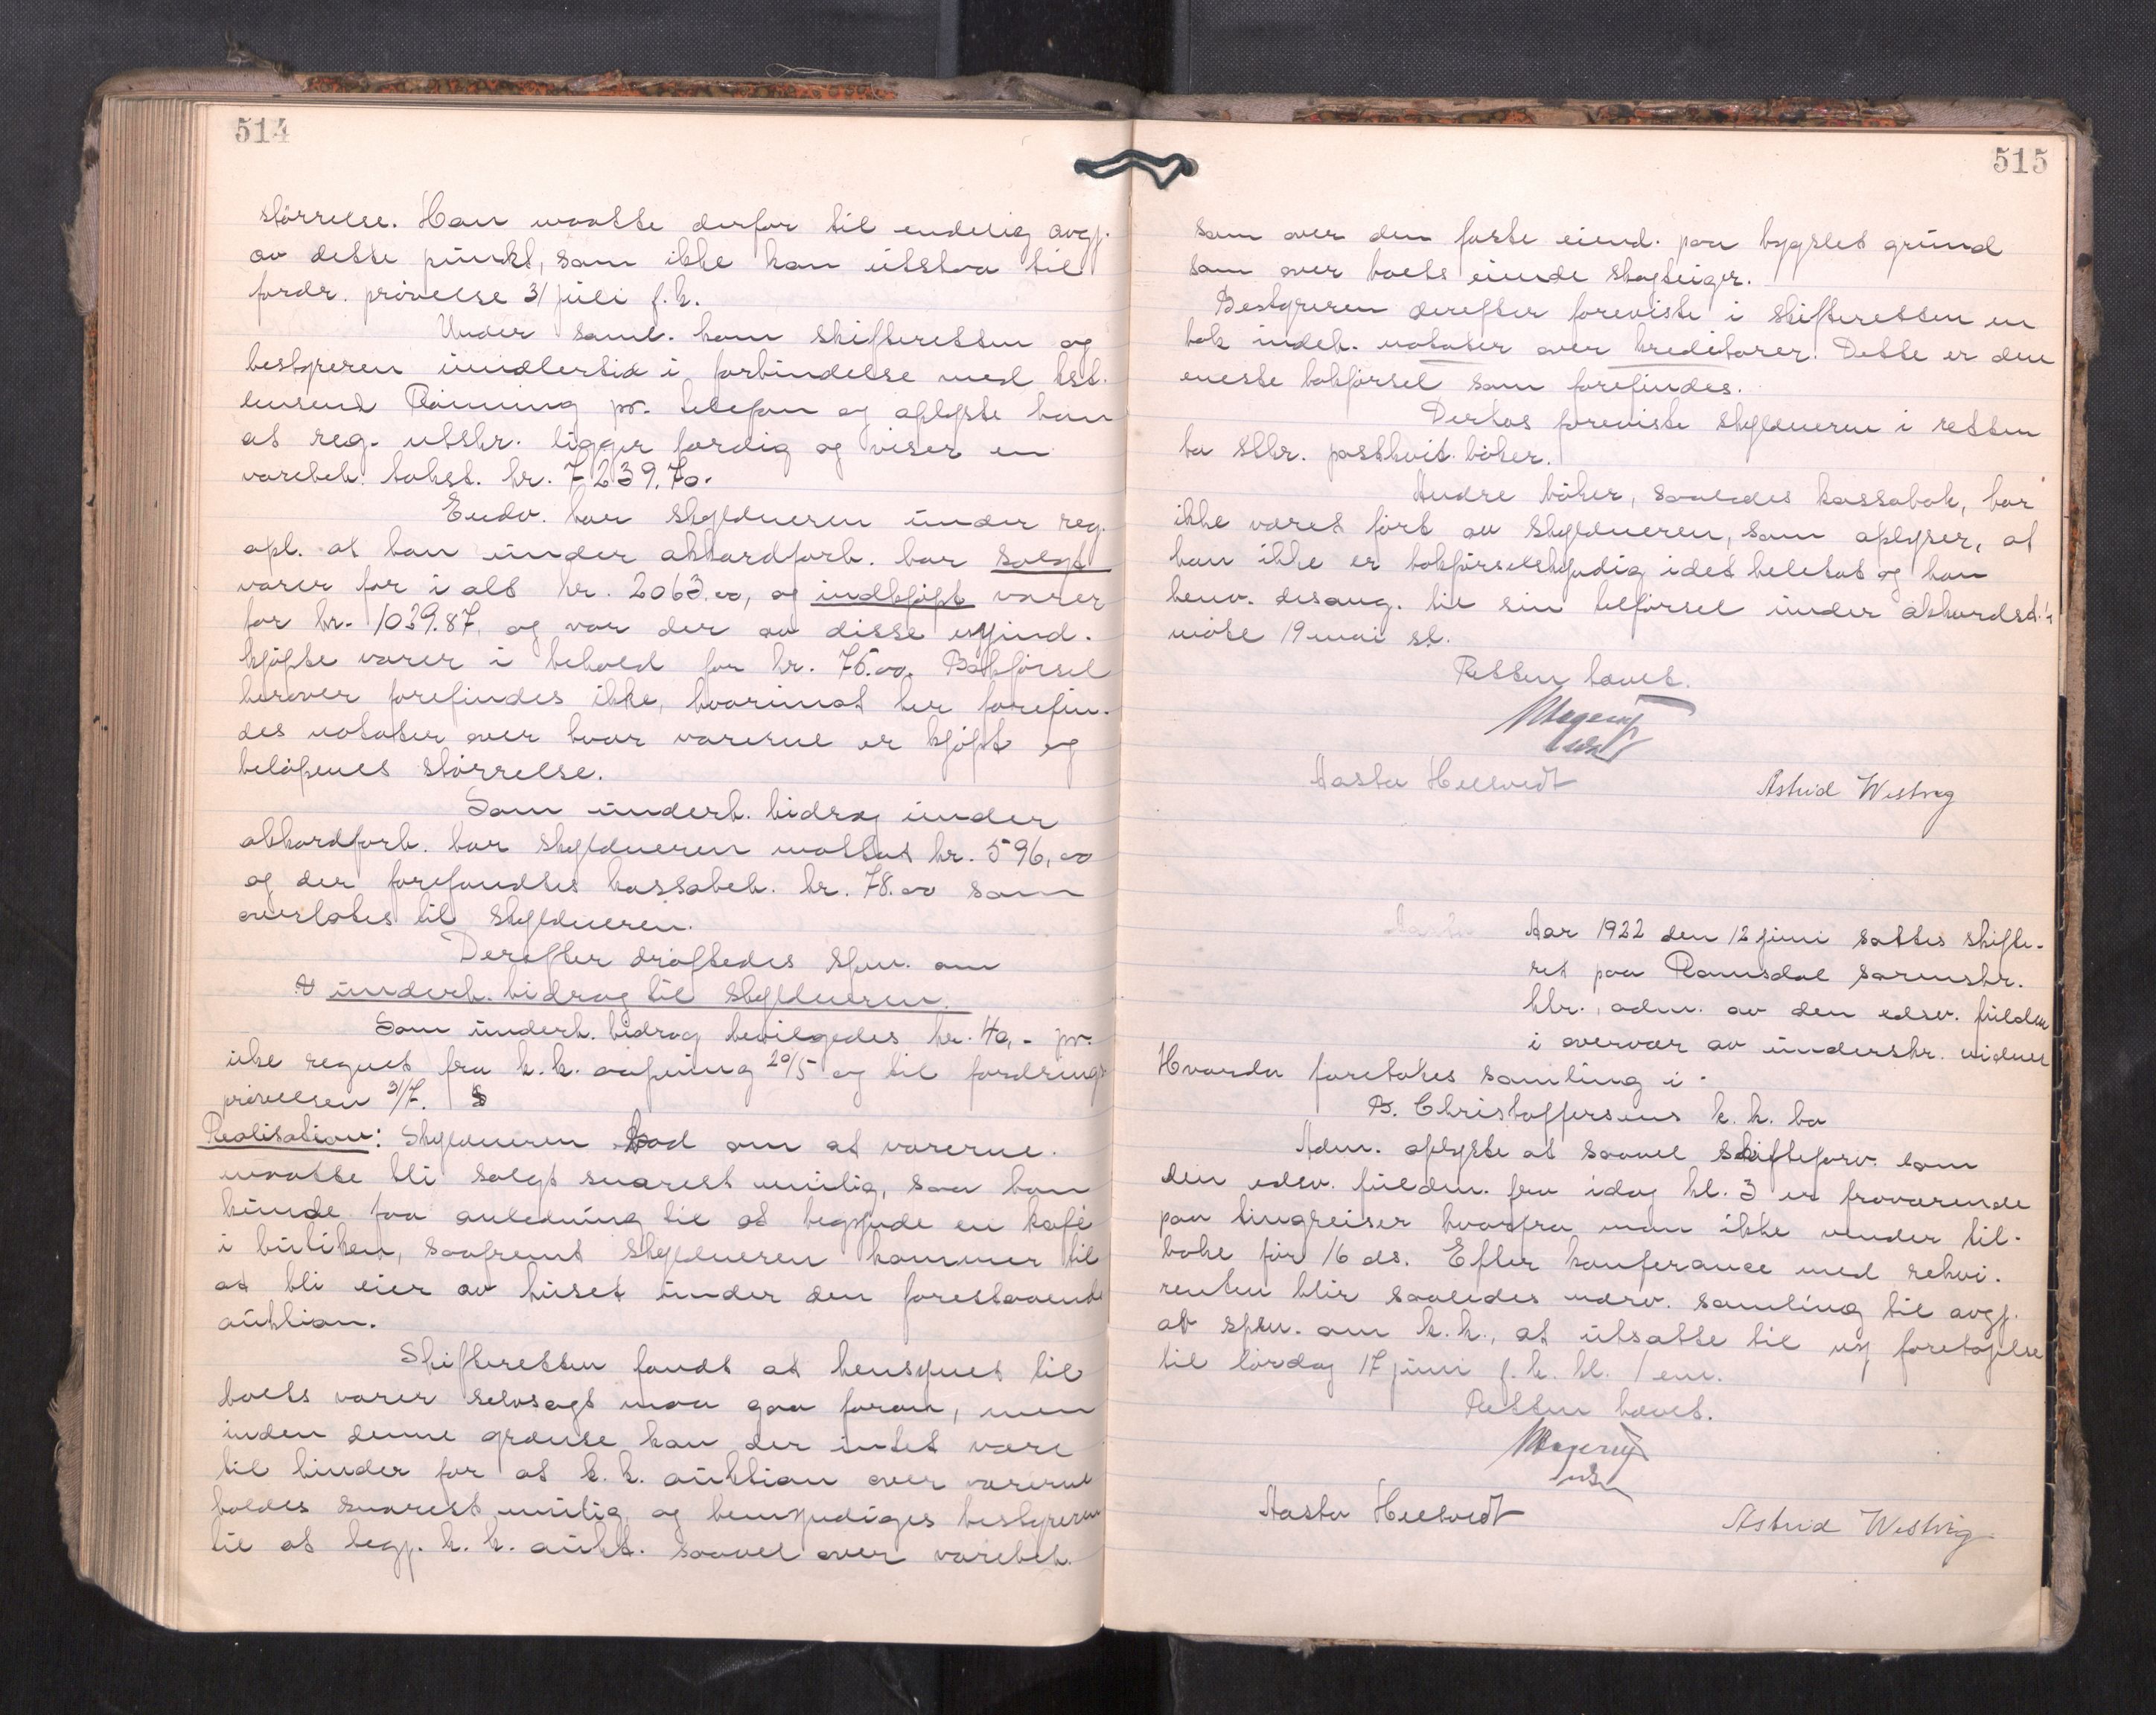 514
störrelse. Han maatte derfor til endelig avgj.
av dette punkt, som ikke kan utstaa til
fordr. prövelse 3/ juli f. k.
Under saml. kom skifteretten og
bestyreren imidlertid i forbindelse med kst.
lensmd Rönning pr. telefon og oplyste han
at reg. utskr. ligger færdig og viser en
varebeh. takst. kr. 7239.70.
Endv. har skyldneren under reg.
opl. at han under akkordforh. har solgt
varer for i alt kr. 2063.00, og indkjöpt varer
for kr. 1039.87, og var der av disse nyind-
kjöpte varer i behold for kr. 76.00. Bokförsel
herover forefindes ikke, hvorimot her forefin-
des notater over hvor varerne er kjöpt og
belöpenes störrelse.
Som underh. bidrag under
akkordforh. har skyldneren mottat kr. 596,00
og der forefandtes kassabeh. kr. 78.00 som
overlates til skyldneren.
Derefter dröftedes spm. om
underh. bidrag til skyldneren.
Som underh. bidrag bevilgedes kr. 40,- pr.
uke regnet fra k. k. aapning 20/5 og til fordrings
prövelsen 3/7.
Realisation: Skyldneren bad om at varerne
maatte bli solgt snarest mulig, saa han
kunde faa anledning til at begynde en kafé
i butiken, saafremt skyldneren kommer til
at bli eier av huset under den forestaaende
auktion.
Skifteretten fandt at hensynet til
boets varer selvsagt maa gaa foran, men
inden denne grænse kan der intet være
til hinder for at k. k. auktion over varerne
holdes snarest mulig og bemyndiges bestyreren
til at begj. k. k. aukt. saavel over varebeh.
515
som over den faste eiend. paa bygslet grund
som over boets eiende skogteiger.
Bestyreren derefter foreviste i skifteretten en
bok indeh. notater over kreditorer. Dette er den
eneste bokförsel som forefindes.
Derhos foreviste skyldneren i retten
to stkr. postkvit. böker.
Andre böker, saaledes kassabok, har
ikke været fört av skyldneren, som oplyser, at
han ikke er bokförselskyndig idet heletat og han
henv. desang. til sin tilförsel under akkordsd.'s
möte 19 mai sl.
Retten hævet.
Aasta Heltvedt
Astrid Westvig
Aar 1922 den 12 juni sattes skifte-
ret paa Ramsdal sorenskr.
ktr., adm. av den edsv. fuldm
i overvær av underskr. vidner
Hvorda foretokes samling i
B. Christoffersens k. k. bo
Adm. oplyste at saavel skifteforv. som
den edsv. fuldm. fra idag kl. 3 er fraværende
paa tingreiser hvorfra man ikke vender til-
bake för 16 ds. Efter konferance med rekvi-
renten blir saaledes nærv. samling til avgj.
av spm. om k. k., at utsætte til ny foretagelse
til lördag 17 juni f. k. kl. 1 em.
Retten hævet.
Aasta Heltvedt
Astrid Westvig